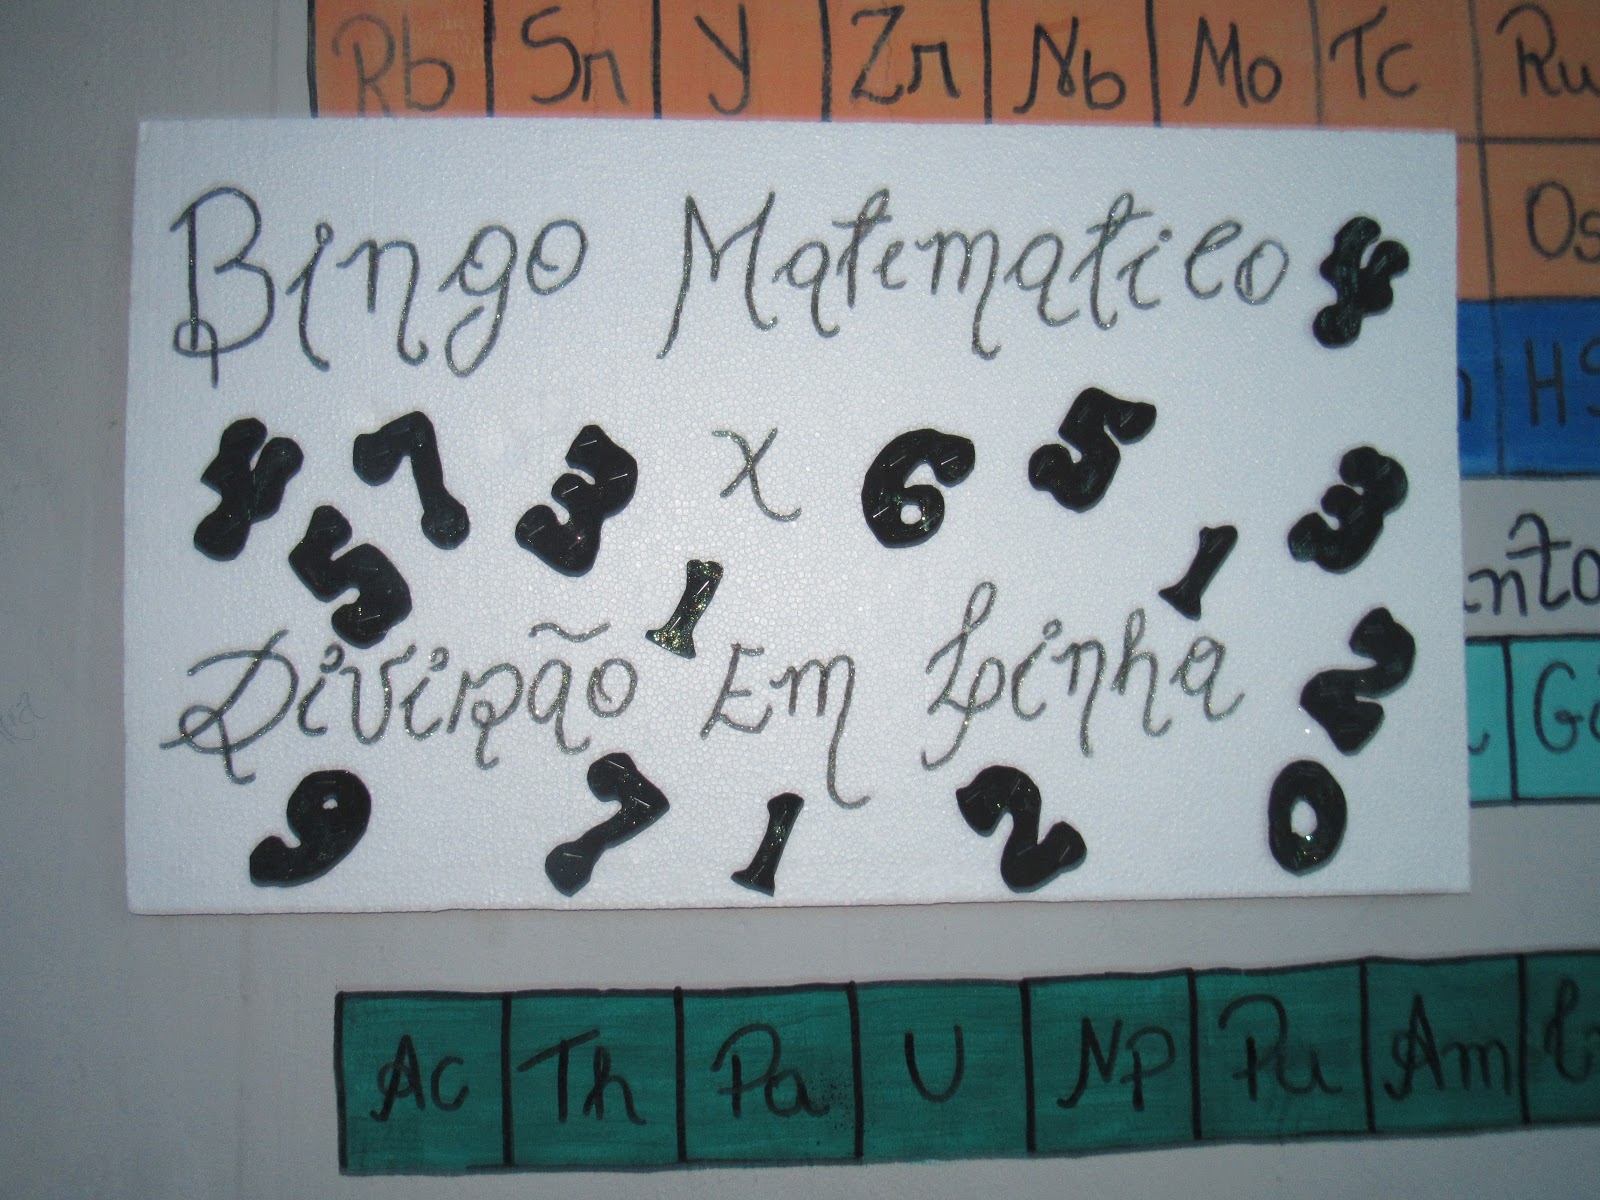 Rb Sr Y Zr Nb Mo Tc Ru
Os
Bingo Matematico 4
HS
4 7 3 x 6 5 3
5 1 1
nto
Divisão Em Linha 2
9 7 1 2 0
Ac Th Pa U Np Pu Am